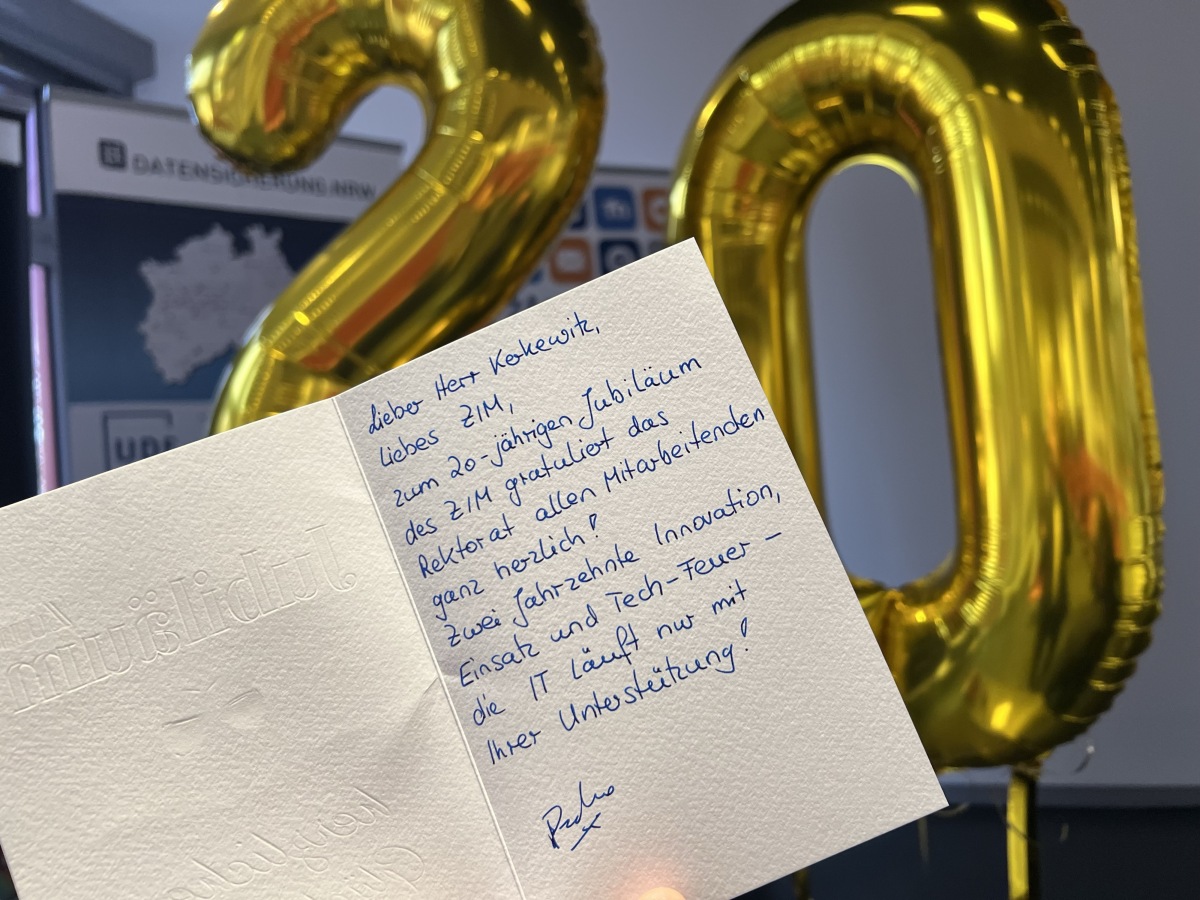 20
DATENSICHERUNG.NRW
Lieber Herr Kerkewitz,
liebes ZIM,
zum 20-jährigen Jubiläum
des ZIM gratuliert das
Rektorat allen Mitarbeitenden
ganz herzlich!
Zwei Jahrzehnte Innovation,
Einsatz und Tech-Feuer –
die IT läuft nur mit
Ihrer Unterstützung!
Jubiläum